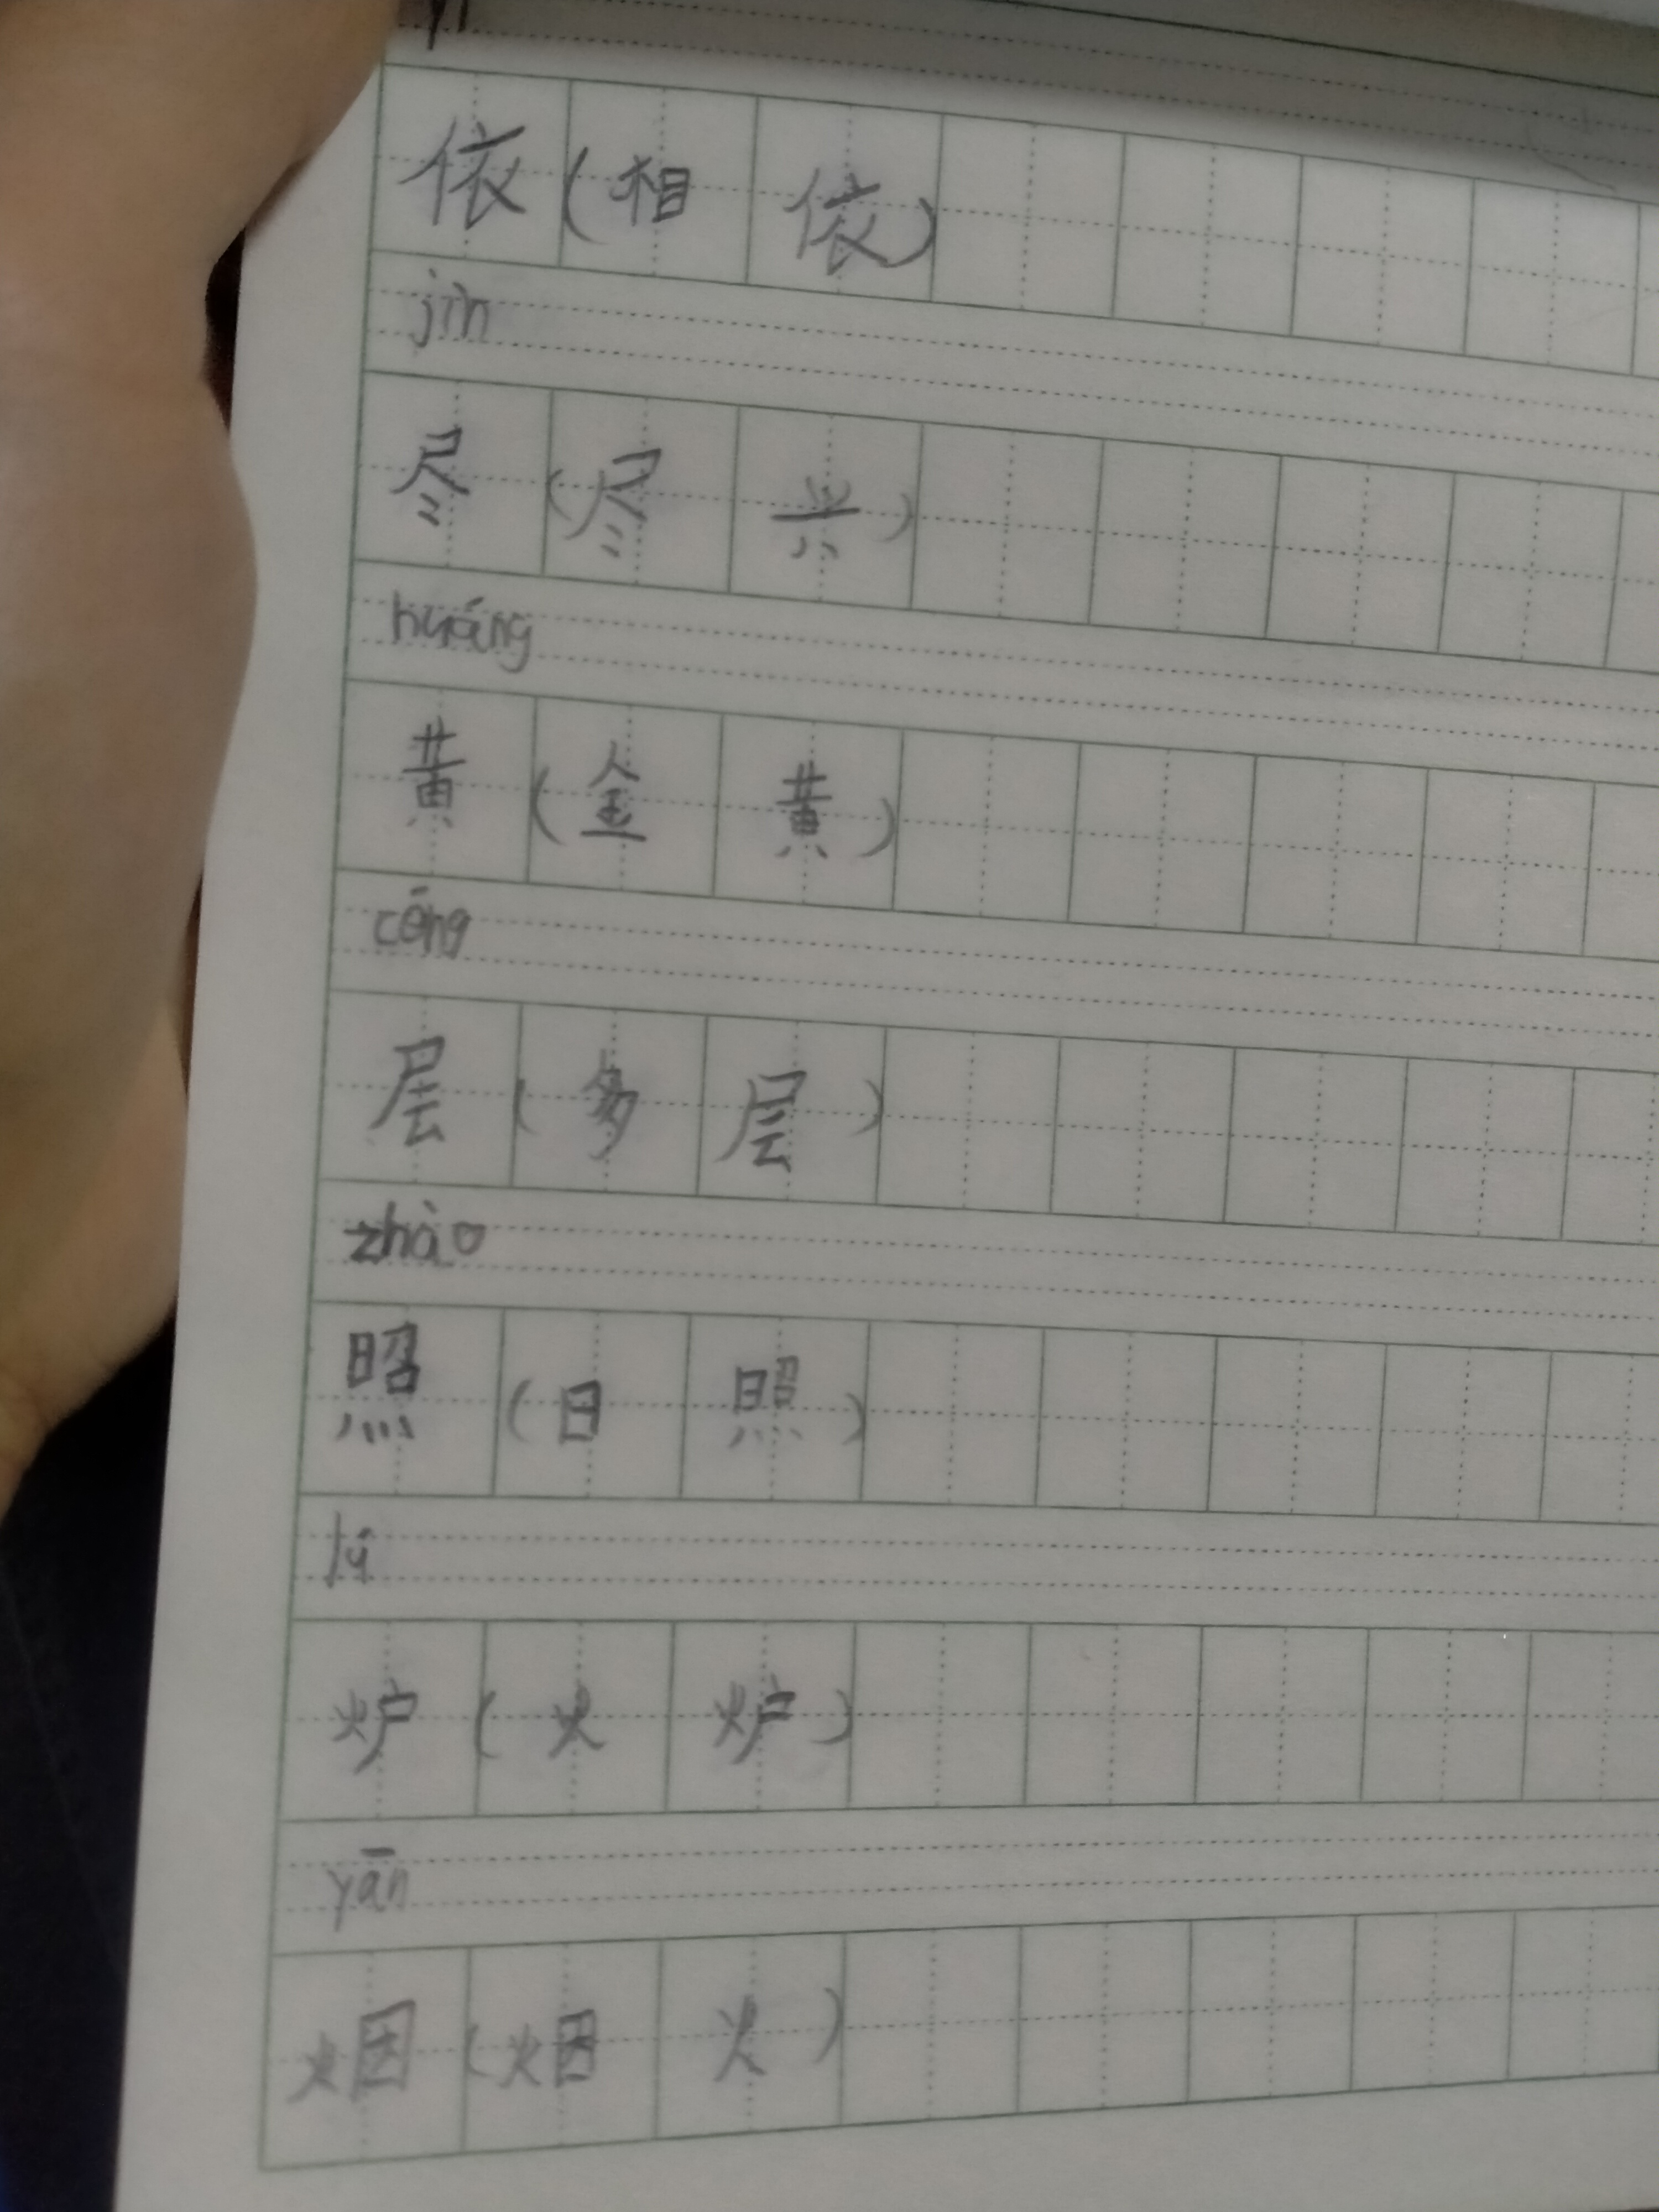 依(相依)
jìn
尽(尽兴)
huáng
黄(金黄)
céng
层(多层)
zhào
照(日照)
lú
炉(火炉)
yān
烟(烟火)